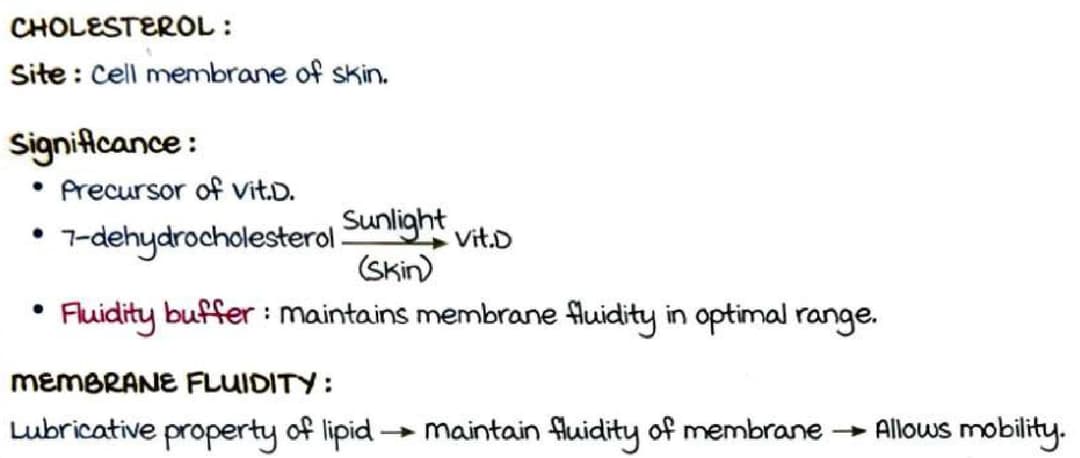 CHOLESTEROL :
Site : Cell membrane of skin.
Significance :
• Precursor of Vit.D.
• 7-dehydrocholesterol Sunlight (Skin) → Vit.D
• Fluidity buffer : maintains membrane fluidity in optimal range.
MEMBRANE FLUIDITY :
Lubricative property of lipid → maintain fluidity of membrane → Allows mobility.